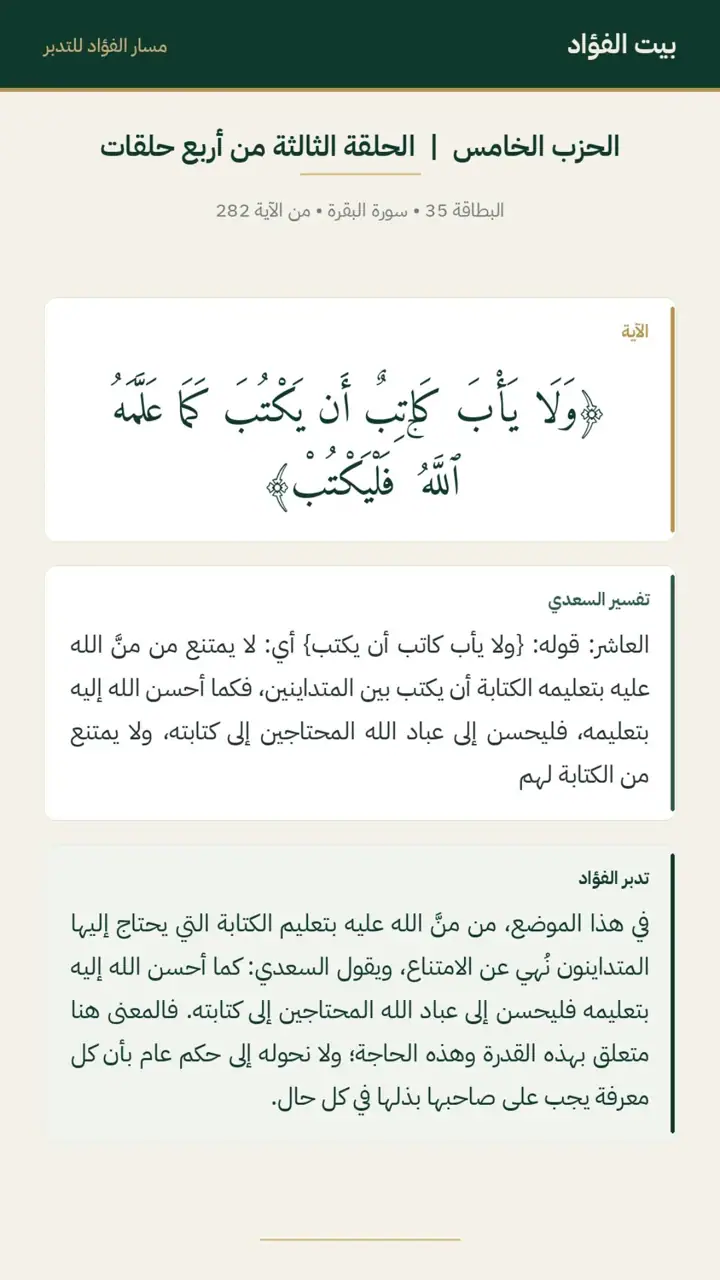 بيت الفؤاد
مسار الفؤاد للتدبر
الحزب الخامس | الحلقة الثالثة من أربع حلقات
البطاقة 35 • سورة البقرة • من الآية 282
الآية
﴿وَلَا يَأْبَ كَاتِبٌ أَن يَكْتُبَ كَمَا عَلَّمَهُ
ٱللَّهُ ۚ فَلْيَكْتُبْ﴾
تفسير السعدي
العاشر: قوله: {ولا يأب كاتب أن يكتب} أي: لا يمتنع من منَّ الله
عليه بتعليمه الكتابة أن يكتب بين المتداينين، فكما أحسن الله إليه
بتعليمه، فليحسن إلى عباد الله المحتاجين إلى كتابته، ولا يمتنع
من الكتابة لهم
تدبر الفؤاد
في هذا الموضع، من منَّ الله عليه بتعليم الكتابة التي يحتاج إليها
المتداينون نُهي عن الامتناع، ويقول السعدي: كما أحسن الله إليه
بتعليمه فليحسن إلى عباد الله المحتاجين إلى كتابته. فالمعنى هنا
متعلق بهذه القدرة وهذه الحاجة؛ ولا نحوله إلى حكم عام بأن كل
معرفة يجب على صاحبها بذلها في كل حال.